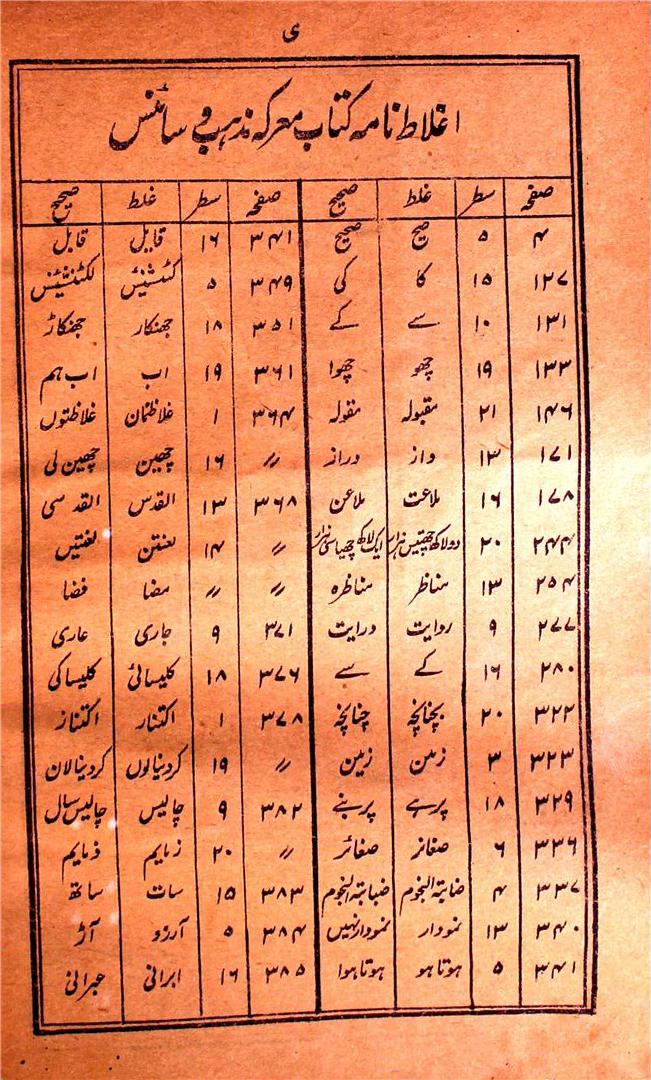 ی
اغلاط نامہ کتاب معرکہ مذہب و سائنس
صفحہ سطر غلط صحیح صفحہ سطر غلط صحیح
۴ ۵ صیح صحیح ۳۴۱ ۱۶ قایل قابل
۱۲۷ ۱۵ کا کی ۳۴۹ ۵ لکٹنٹیئس
۱۳۱ ۱۰ سے کے ۳۵۱ ۱۸ جھنکار جھنکاڑ
۱۳۳ ۱۹ چھو چھوا ۳۶۱ ۱۹ اب اب ہم
۱۴۶ ۲۱ مقبولہ مقولہ ۳۶۴ ۱ غلاظتان غلاظتوں
۱۷۱ ۱۳ داز دراز 〃 ۱۶ چھین چھین لی
۱۷۸ ۱۶ ملاعت ملاعن ۳۶۸ ۱۳ القدس القدسی
۲۴۴ ۲۰ دولاکھ چھتیس ہزار ایک لاکھ چھیاسی ہزار 〃 ۱۴ لعنتن لعنتیں
۲۵۴ ۱۳ مناظر مناظرہ 〃 〃 مضا فضا
۲۷۷ ۹ روایت درایت ۳۷۱ ۹ جاری عاری
۲۸۰ ۱۶ کے سے ۳۷۶ ۱۸ کلیسائی کلیسا کی
۳۲۲ ۲۰ چنانچہ ۳۷۸ ۱ اکتنار اکتناز
۳۲۳ ۳ زمین زین 〃 ۱۹ کردینالوں کردینالان
۳۲۹ ۱۸ پرہے پر بنے ۳۸۲ ۹ چالیس چالیس سال
۳۳۶ ۶ صغائز صغائر 〃 ۲۰ زمایم ذمایم
۳۳۷ ۴ ضابتہ النجوم ضبابتہ النجوم ۳۸۳ ۱۵ سات ساتھ
۳۴۰ ۱۳ نمودار نمودار نہیں ۳۸۴ ۵ آرزو آڑ
۳۴۱ ۵ ہوتا ہو ہوتا ہوا ۳۸۵ ۱۶ ایرانی عبرانی